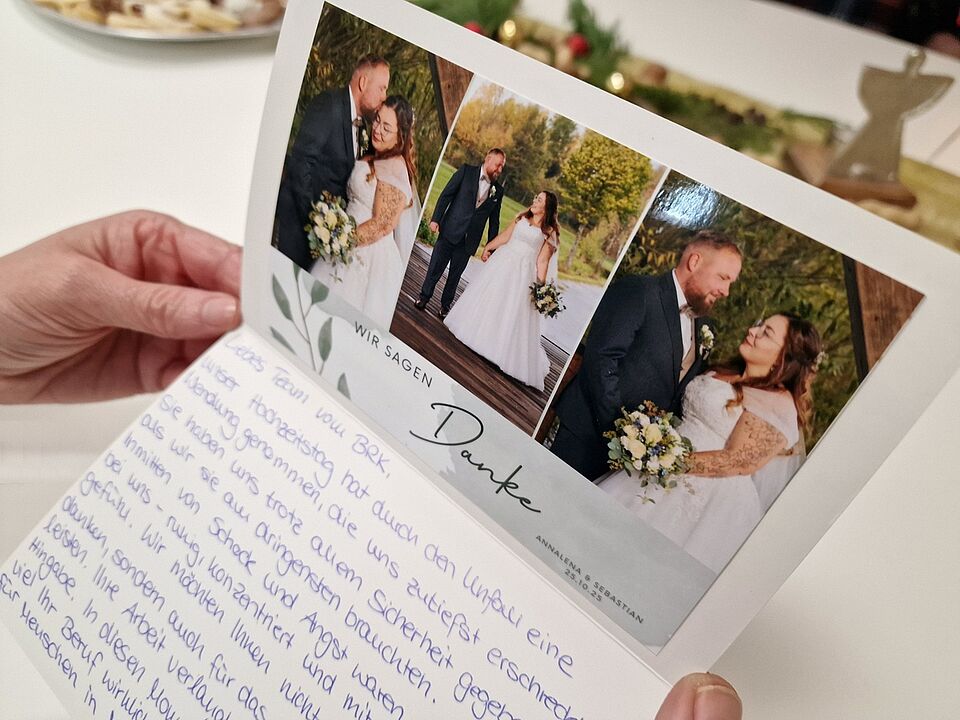 WIR SAGEN
Danke
ANNALENA & SEBASTIAN
25.10.25
Liebes Team vom BRK,
Unser Hochzeitstag hat durch den Unfall eine
Wendung genommen, die uns zutiefst erschreckt
sie haben uns trotz allem Sicherheit gegebe
als wir sie am dringensten brauchten.
Inmitten von Schock und Angst waren
bei uns - ruhig, konzentriert und mit
gefühl. Wir möchten Ihnen nicht
danken, sondern auch für das
leisten. Ihre Arbeit verlang
Hingabe. In diesen Mom
viel Ihr Beruf wirklic
für Menschen in